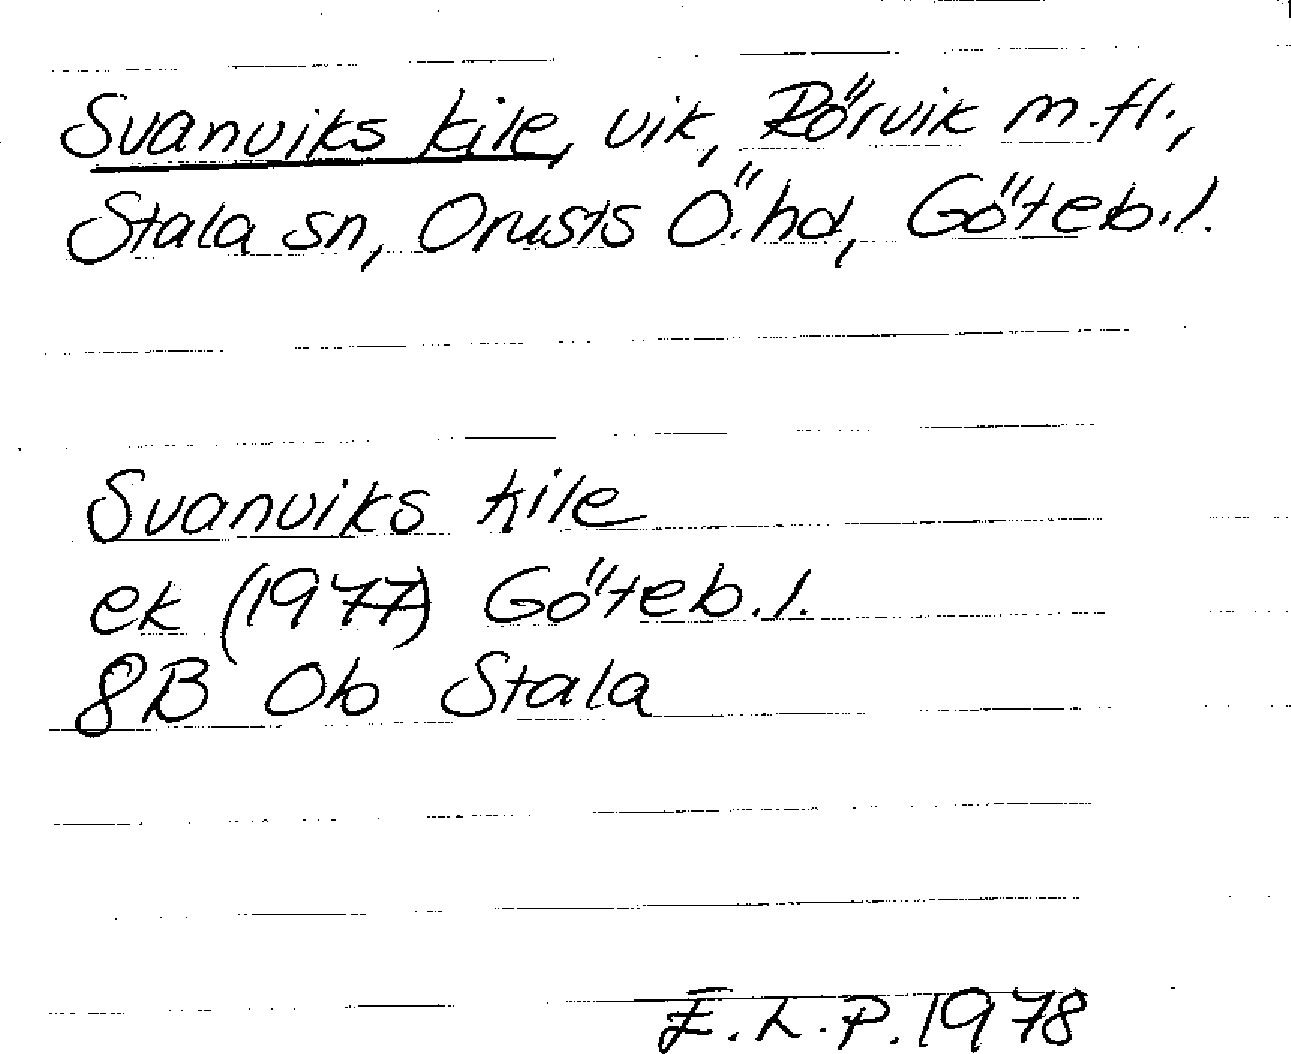 Svanviks kile, vik, Rörvik m.fl.,
Stala sn, Orusts Ö. hd, Göteb. l.
Svanviks kile
ek (1977) Göteb. l.
8B 0b Stala
E. L. P. 1978